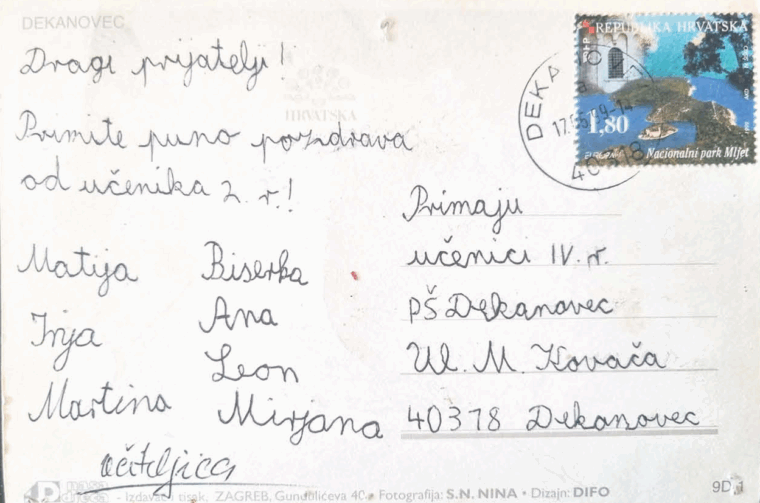 DEKANOVEC
Dragi prijatelji!
HRVATSKA
Primite puno pozdrava
od učenika 2. r.!
Matija
Biserka
Ana
Inja
Leon
Martina
Mirjana
učiteljica
REPUBLIKA HRVATSKA
1,80
Nacionalni park Mljet
DEKA
40318
Primaju
učenici IV. r.
PŠ Dekanovec
Ul. M. Kovača
40318 Dekanovec
- Izdavač i tisak, ZAGREB, Gundulićeva 40 - Fotografija: S.N. NINA • Dizajn: DIFO